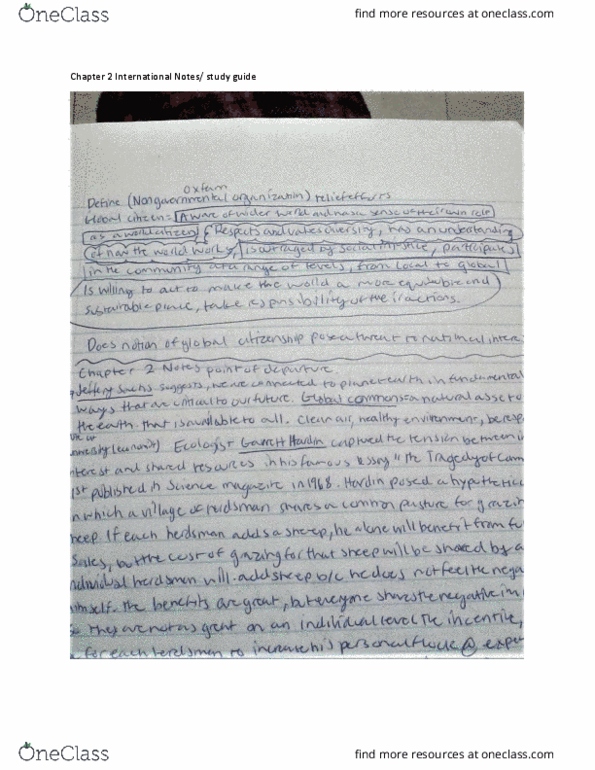 OneClass
find more resources at oneclass.com
Chapter 2 International Notes/ study guide
oxfam
Define (Nongovernmental organization) relief efforts
Global citizen: Aware of wider world and has a sense of their own role
as a world citizen, Respects and values diversity, has an understanding
of how the world works, is outraged by social injustice, participates
in the community at a range of levels, from local to global
Is willing to act to make the world a more equitable and
sustainable place, take responsibility of their actions.
Does notion of global citizenship pose a threat to national inter
Chapter 2 Notes point of departure.
Jeffery Sachs suggests, we are connected to planet earth in fundamental
ways that are critical to our future. Global commons a natural asset o
the earth that is available to all. Clean air, healthy environment,
Ecologist Garrett Hardin captured the tension between in
nterest and shared resources in his famous essay "the Tragedy of Com
1st published in Science magazine in 1968. Hardin posed a hypothetica
n which a village of herdsman shares a common pasture for grazin
heep. If each herdsman adds a sheep, he alone will benefit from fu
Sales, but the cost of grazing for that sheep will be shared by a
ndividual herdsmen will add sheep b/c he does not feel the nega
himself. the benefits are great, but everyone shares the negative im
So they are not as great on an individual level. The incentive,
for each herdsmen to increase his personal flock @ expen
OneClass
find more resources at oneclass.com